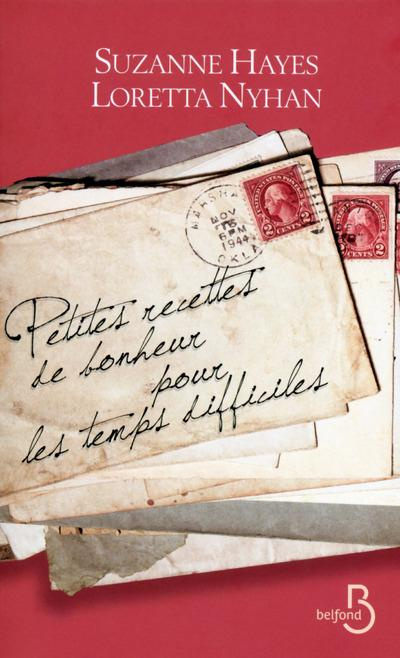 SUZANNE HAYES
LORETTA NYHAN
MARSHA
NOV
6 PM
1944
OKLA
UNITED STATES POSTAGE
2 CENTS 2
2 CENTS 2
Petites recettes
de bonheur
pour
les temps difficiles
belfond
B